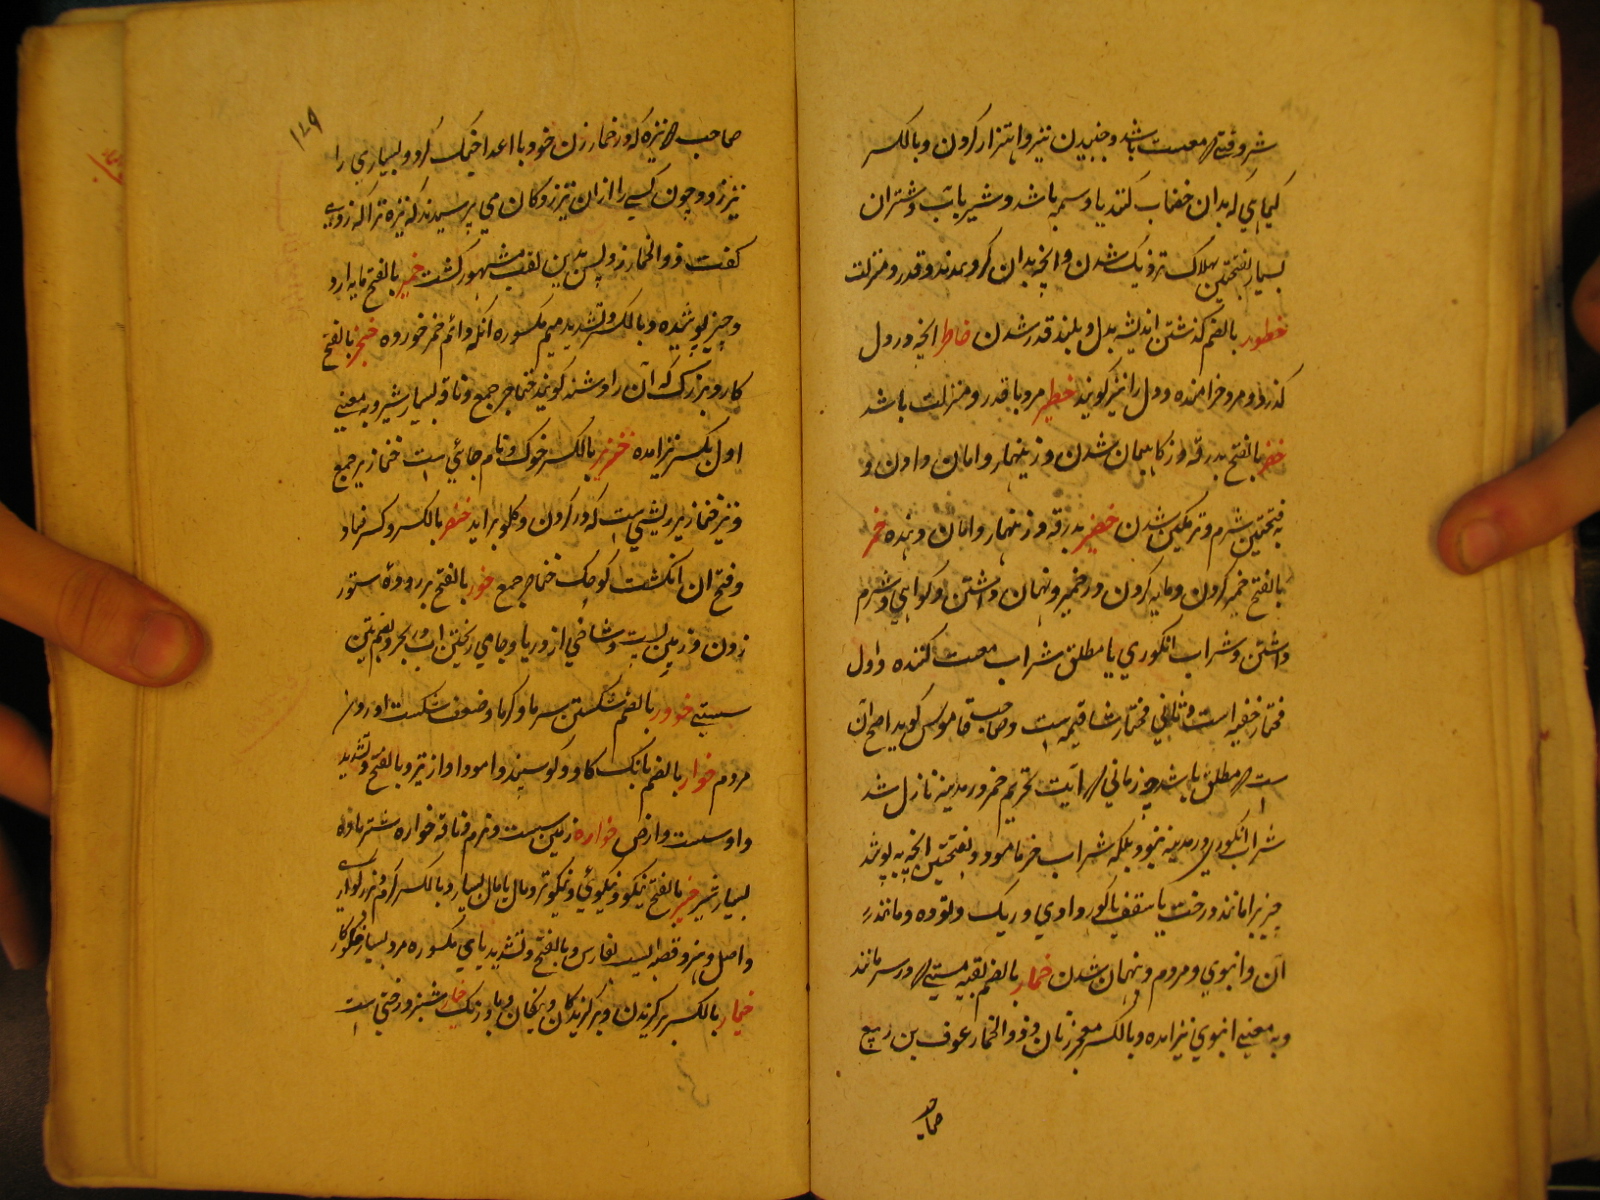 شیر و رفتی معست باشد و جنبیدن نیزه و اهتزاز کردن و بالکسر
کیاهی که بدان خضاب کنند یا وسمه باشد و شیر با آب و شتران
بسیار بفتحتین بهلاک نزدیک شدن و آنچه بدان کرو بندند و قدر و منزلت
خطور بالضم کذشتن اندیشه بدل و بلند قدر شدن خاطر آنچه در دل
کذرد و مرد خرامنده و دل را نیز کویند خطیر مرد با قدر و منزلت باشد
خفر بالفتح بدرقه و نکاهبان شدن و زینهار و امان دادن و
بفتحتین شرم و شرمکین شدن خفیر بدرقه و زینهار و امان دهنده خمر
بالفتح خمیر کردن و مایه کردن در خمیر و نهان داشتن کواهی و شرم
داشتن و شراب انکوری یا مطلق شراب مست کننده و اول
مختار حنفیه است و ثانی مختار شافعیه است و صاحب قاموس کوید اصح آن
است که مطلق باشد چه زمانی که آیت تحریم خمر در مدینه نازل شد
شراب انکوری در مدینه نبود بلکه شراب خرما بود و بفتحتین آنچه بپوشد
چیزیرا مانند درخت یا سقف یا کوه و وادی و ریک توده و مانند
آن و انبوی و مردم و پنهان شدن خمار بالضم بقیه مستی که در سر ماند
و بمعنی انبوی نیز آمده و بالکسر معجر زنان و ذو الخمار عوف بن ربیع
صاحب
۱۷۹
صاحب نیزه که در خمار زن خود با اعدا جنک کرد و بسیاری را
نیزه زد و چون کسی را از آن نیزه زدکان می پرسیدند که نیزه ترا که زد وی
کفت ذو الخمار زد پس بدین لقب مشهور کشت خمیر بالفتح مایه آرد
و چیز پوشیده و بالکسر و تشدید میم مکسوره آنکه دائم خمر خورده خنجر بالفتح
کارد بزرک که آن را دشنه کویند خناجر جمع و ناقه بسیار شیر و به معنی
اول بکسر نیز آمده خنزیر بالکسر خوک و نام جائی است خنازیر جمع
و نیز خنازیر ریشی است که در کردن و کلو برآید خنصر بالکسر و کسر صاد
و فتح آن انکشت کوچک خناصر جمع خور بالفتح بر روده ستور
زدن و زمین پست و شاخی از دریا و جای ریختن آب در بحر و بفتحتین
سستی خوور بالضم شکستن سرما و کرما و ضعف شکست آوردن
مردم خوار بالضم بانک کاو و کوسپند و آهو و آواز تیر و بالفتح و تشدید
واو سست و ارض خواره زمین سست و نرم و ناقه خواره شتر ماده
بسیار شیر خیر بالفتح نیکو و نیکوئی و نیکوتر و مال یا مال بسیار و بالکسر کرم و بزرکواری
و اصل و هنر و قصبه ایست بفارس و بالفتح و تشدید یای مکسوره مرد بسیار نکوکار
خیار بالکسر برکزیدن و برکزیدکان و نیکان و بادرنک خیار شنبر درختی است